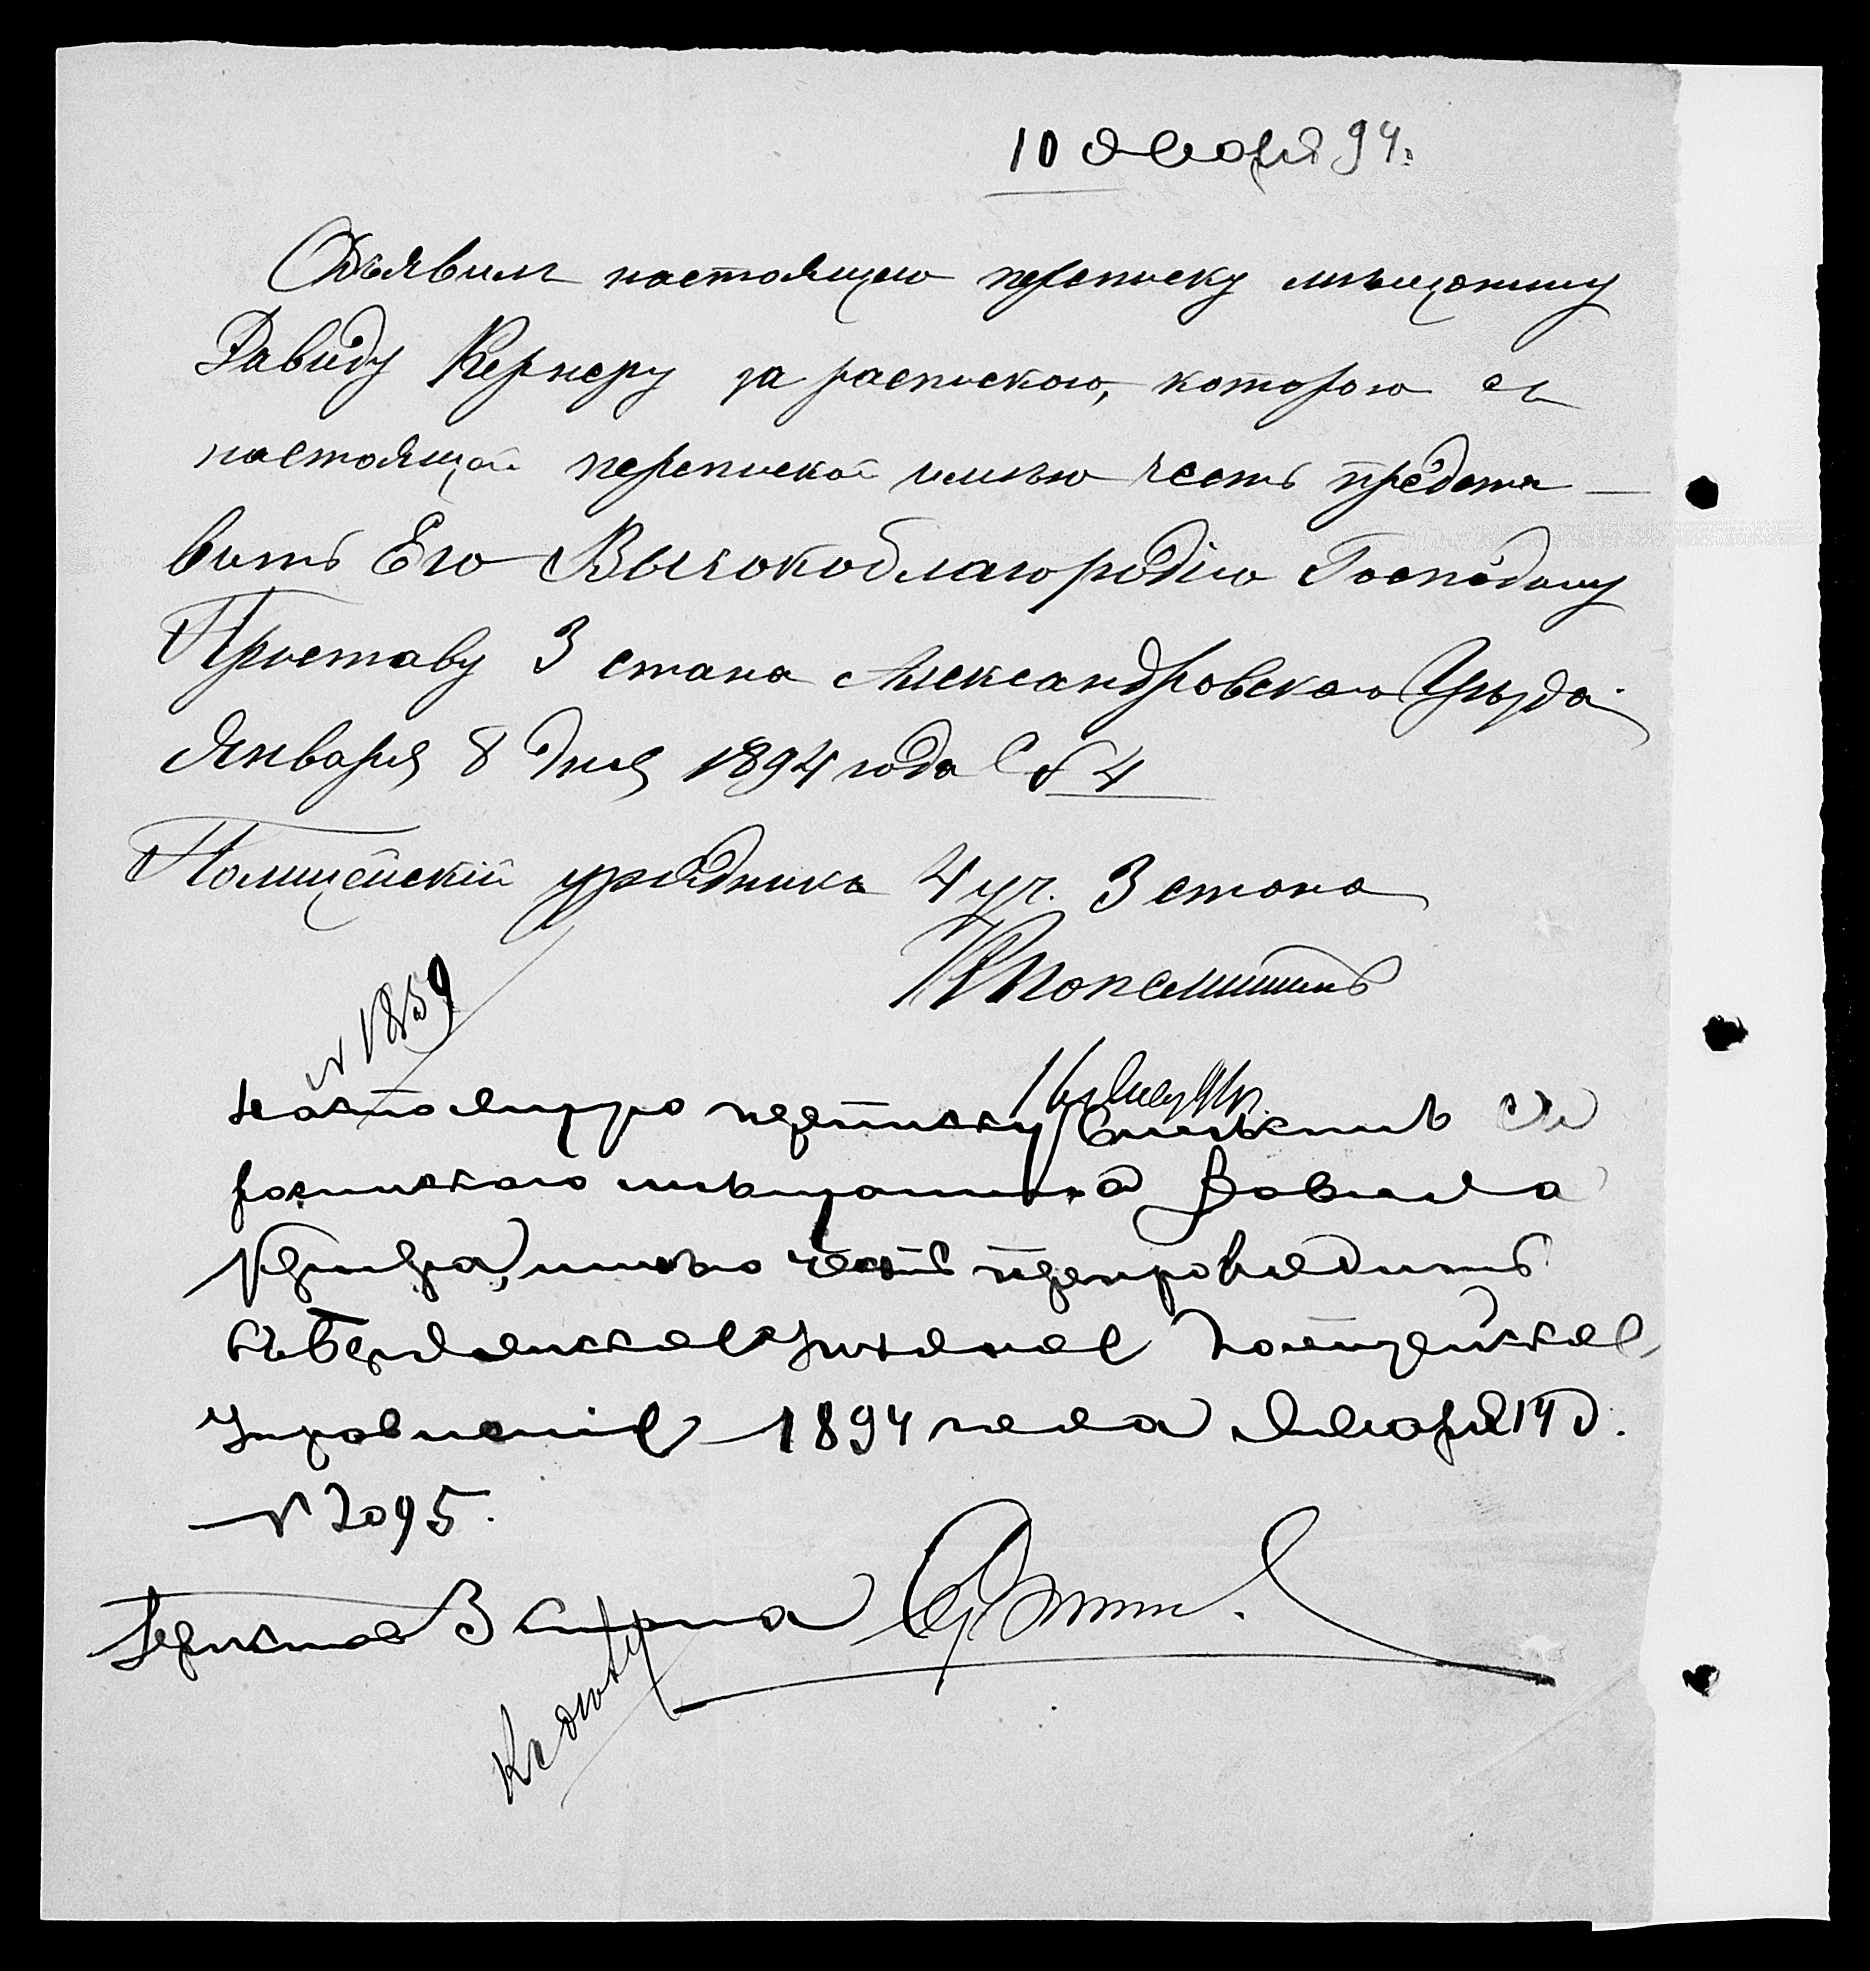 10 Января 94.
Объявилъ настоящую переписку мѣщанину
Давиду Кернеру за распискою, которою съ
настоящей перепиской имѣю честь предста-
вить Его Высокоблагородію Господину
Приставу 3 стана Александровскаго Уѣзда.
Января 8 дня 1894 года № 4
Полицейскій урядникъ 4 уч. 3 стана
№ 1859
Настоящую переписку вмѣстѣ съ
роспискою мѣщанина Давида
Кернера, имѣю честь препроводить
въ Бердянское Уѣздное Полицейское
Управленіе 1894 года Января 14 д.
№ 2095.
Приставъ 3 стана
Къ дѣлу